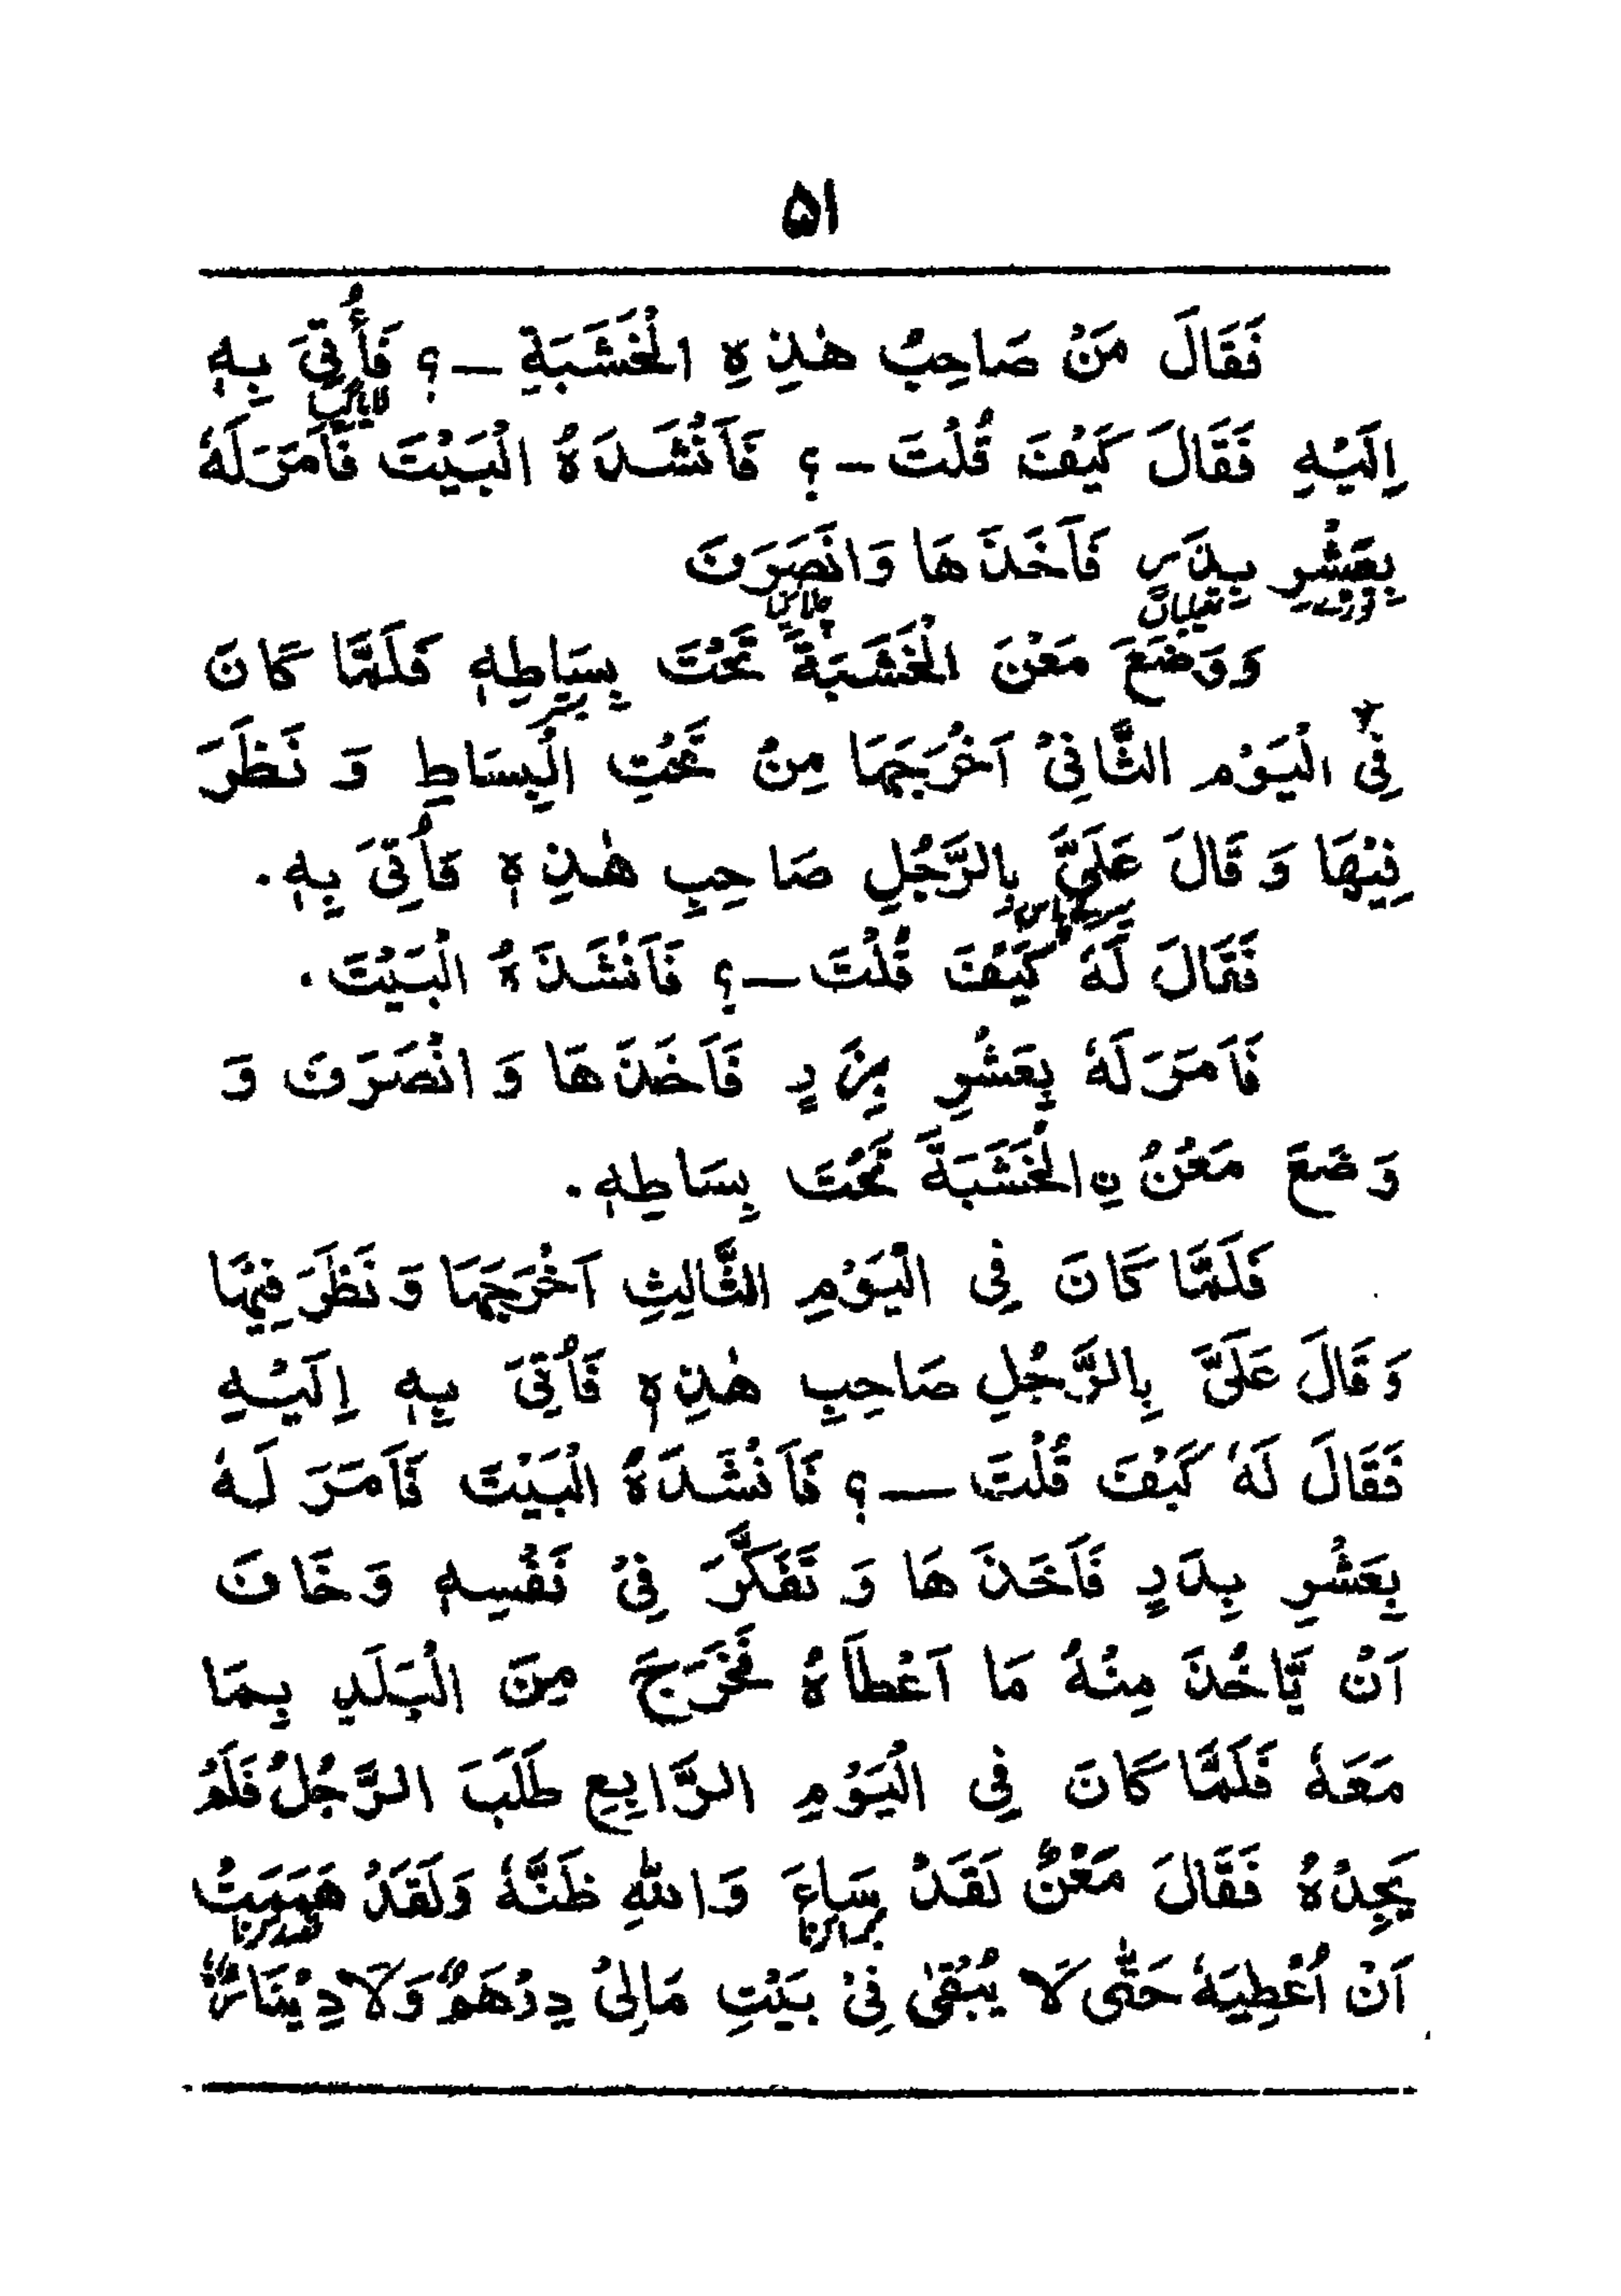 ۵۱
فَقَالَ مَنْ صَاحِبُ هٰذِهِ الْخَشَبَةِ ــ؟ فَأُتِیَ بِهٖ
لایا گیا
اِلَيْهِ فَقَالَ كَيْفَ قُلْتَ ــ؟ فَاَنْشَدَهُ الْبَيْتَ فَاَمَرَ لَهٗ
بِعَشْرِ بِدَرٍ فَاَخَذَهَا وَانْصَرَفَ
توڑے تھیلیاں
وَوَضَعَ مَعْنَ الْخَشَبَةَ تَحْتَ بِسَاطِهٖ فَلَمَّا كَانَ
بستر
فِی الْيَوْمِ الثَّانِیْ اَخْرَجَهَا مِنْ تَحْتِ الْبِسَاطِ وَ نَظَرَ
فِيْهَا وَ قَالَ عَلَیَّ بِالرَّجُلِ صَاحِبِ هٰذِهٖ فَاُتِیَ بِهٖ.
میرے پاس لاؤ
فَقَالَ لَهٗ كَيْفَ قُلْتَ ــ؟ فَاَنْشَدَهُ الْبَيْتَ.
فَاَمَرَ لَهٗ بِعَشْرِ بِدَرٍ فَاَخَذَهَا وَ انْصَرَفَ وَ
وَضَعَ مَعْنُ نِ الْخَشَبَةَ تَحْتَ بِسَاطِهٖ.
فَلَمَّا كَانَ فِی الْيَوْمِ الثَّالِثِ اَخْرَجَهَا وَ نَظَرَ فِيْهَا
وَ قَالَ عَلَیَّ بِالرَّجُلِ صَاحِبِ هٰذِهٖ فَاُتِیَ بِهٖ اِلَيْهِ
فَقَالَ لَهٗ كَيْفَ قُلْتَ ــ؟ فَاَنْشَدَهُ الْبَيْتَ فَاَمَرَ لَهٗ
بِعَشْرِ بِدَرٍ فَاَخَذَهَا وَ تَفَكَّرَ فِیْ نَفْسِهٖ وَ خَافَ
اَنْ يَّاخُذَ مِنْهُ مَا اَعْطَاهُ فَخَرَجَ مِنَ الْبَلَدِ بِمَا
مَعَهٗ فَلَمَّا كَانَ فِی الْيَوْمِ الرَّابِعِ طَلَبَ الرَّجُلُ فَلَمْ
يَجِدْهُ فَقَالَ مَعْنٌ لَقَدْ سَاءَ وَاللهِ ظَنَّهٗ وَلَقَدْ هَمَمْتُ
برا کرنا قصد کرنا
اَنْ اُعْطِيَهٗ حَتّٰی لَا يُبْقٰی فِیْ بَيْتِ مَالِیْ دِرْهَمٌ وَلَا دِيْنَارٌ